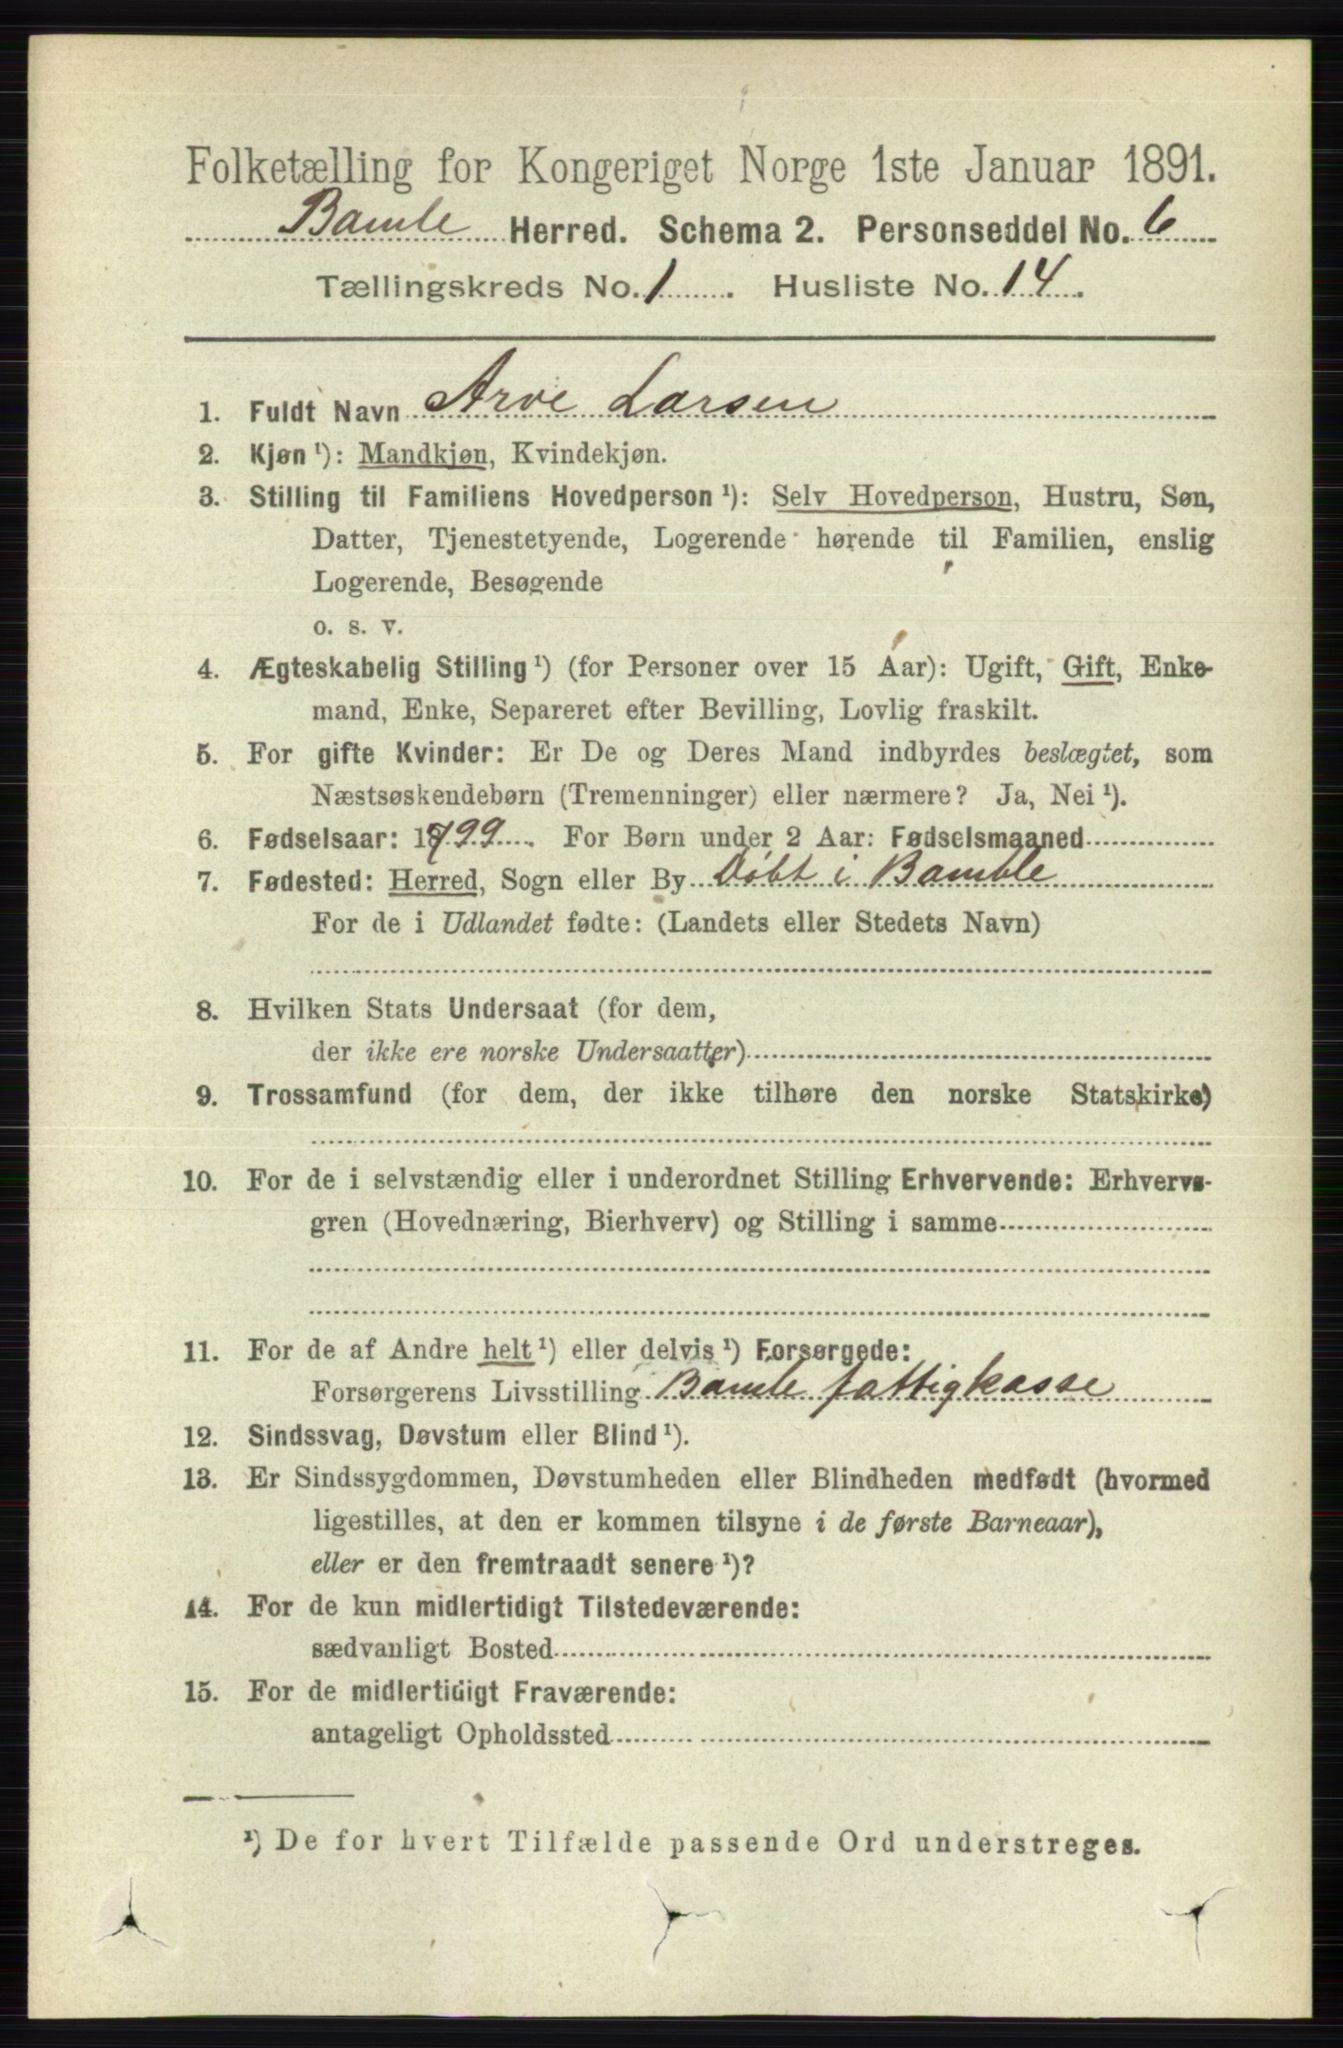 Folketælling for Kongeriget Norge 1ste Januar 1891.
Bamle Herred. Schema 2. Personseddel No. 6
Tællingskreds No. 1. Husliste No. 14.
1. Fuldt Navn Arve Larsen
2. Kjøn¹): Mandkjøn, Kvindekjøn.
3. Stilling til Familiens Hovedperson¹): Selv Hovedperson, Hustru, Søn,
Datter, Tjenestetyende, Logerende hørende til Familien, enslig
Logerende, Besøgende
o. s. v.
4. Ægteskabelig Stilling¹) (for Personer over 15 Aar): Ugift, Gift, Enke-
mand, Enke, Separeret efter Bevilling, Lovlig fraskilt.
5. For gifte Kvinder: Er De og Deres Mand indbyrdes beslægtet, som
Næstsøskendebørn (Tremenninger) eller nærmere? Ja, Nei¹).
6. Fødselsaar: 1799. For Børn under 2 Aar: Fødselsmaaned
7. Fødested: Herred, Sogn eller By Døbt i Bamble
For de i Udlandet fødte: (Landets eller Stedets Navn)
8. Hvilken Stats Undersaat (for dem,
der ikke ere norske Undersaatter)
9. Trossamfund (for dem, der ikke tilhøre den norske Statskirke)
10. For de i selvstændig eller i underordnet Stilling Erhvervende: Erhvervs-
gren (Hovednæring, Bierhverv) og Stilling i samme
11. For de af Andre helt¹) eller delvis¹) Forsørgede:
Forsørgerens Livsstilling Bamle fattigkasse
12. Sindssvag, Døvstum eller Blind¹).
13. Er Sindssygdommen, Døvstumheden eller Blindheden medfødt (hvormed
ligestilles, at den er kommen tilsyne i de første Barneaar),
eller er den fremtraadt senere¹)?
14. For de kun midlertidigt Tilstedeværende:
sædvanligt Bosted
15. For de midlertidigt Fraværende:
antageligt Opholdssted
¹) De for hvert Tilfælde passende Ord understreges.